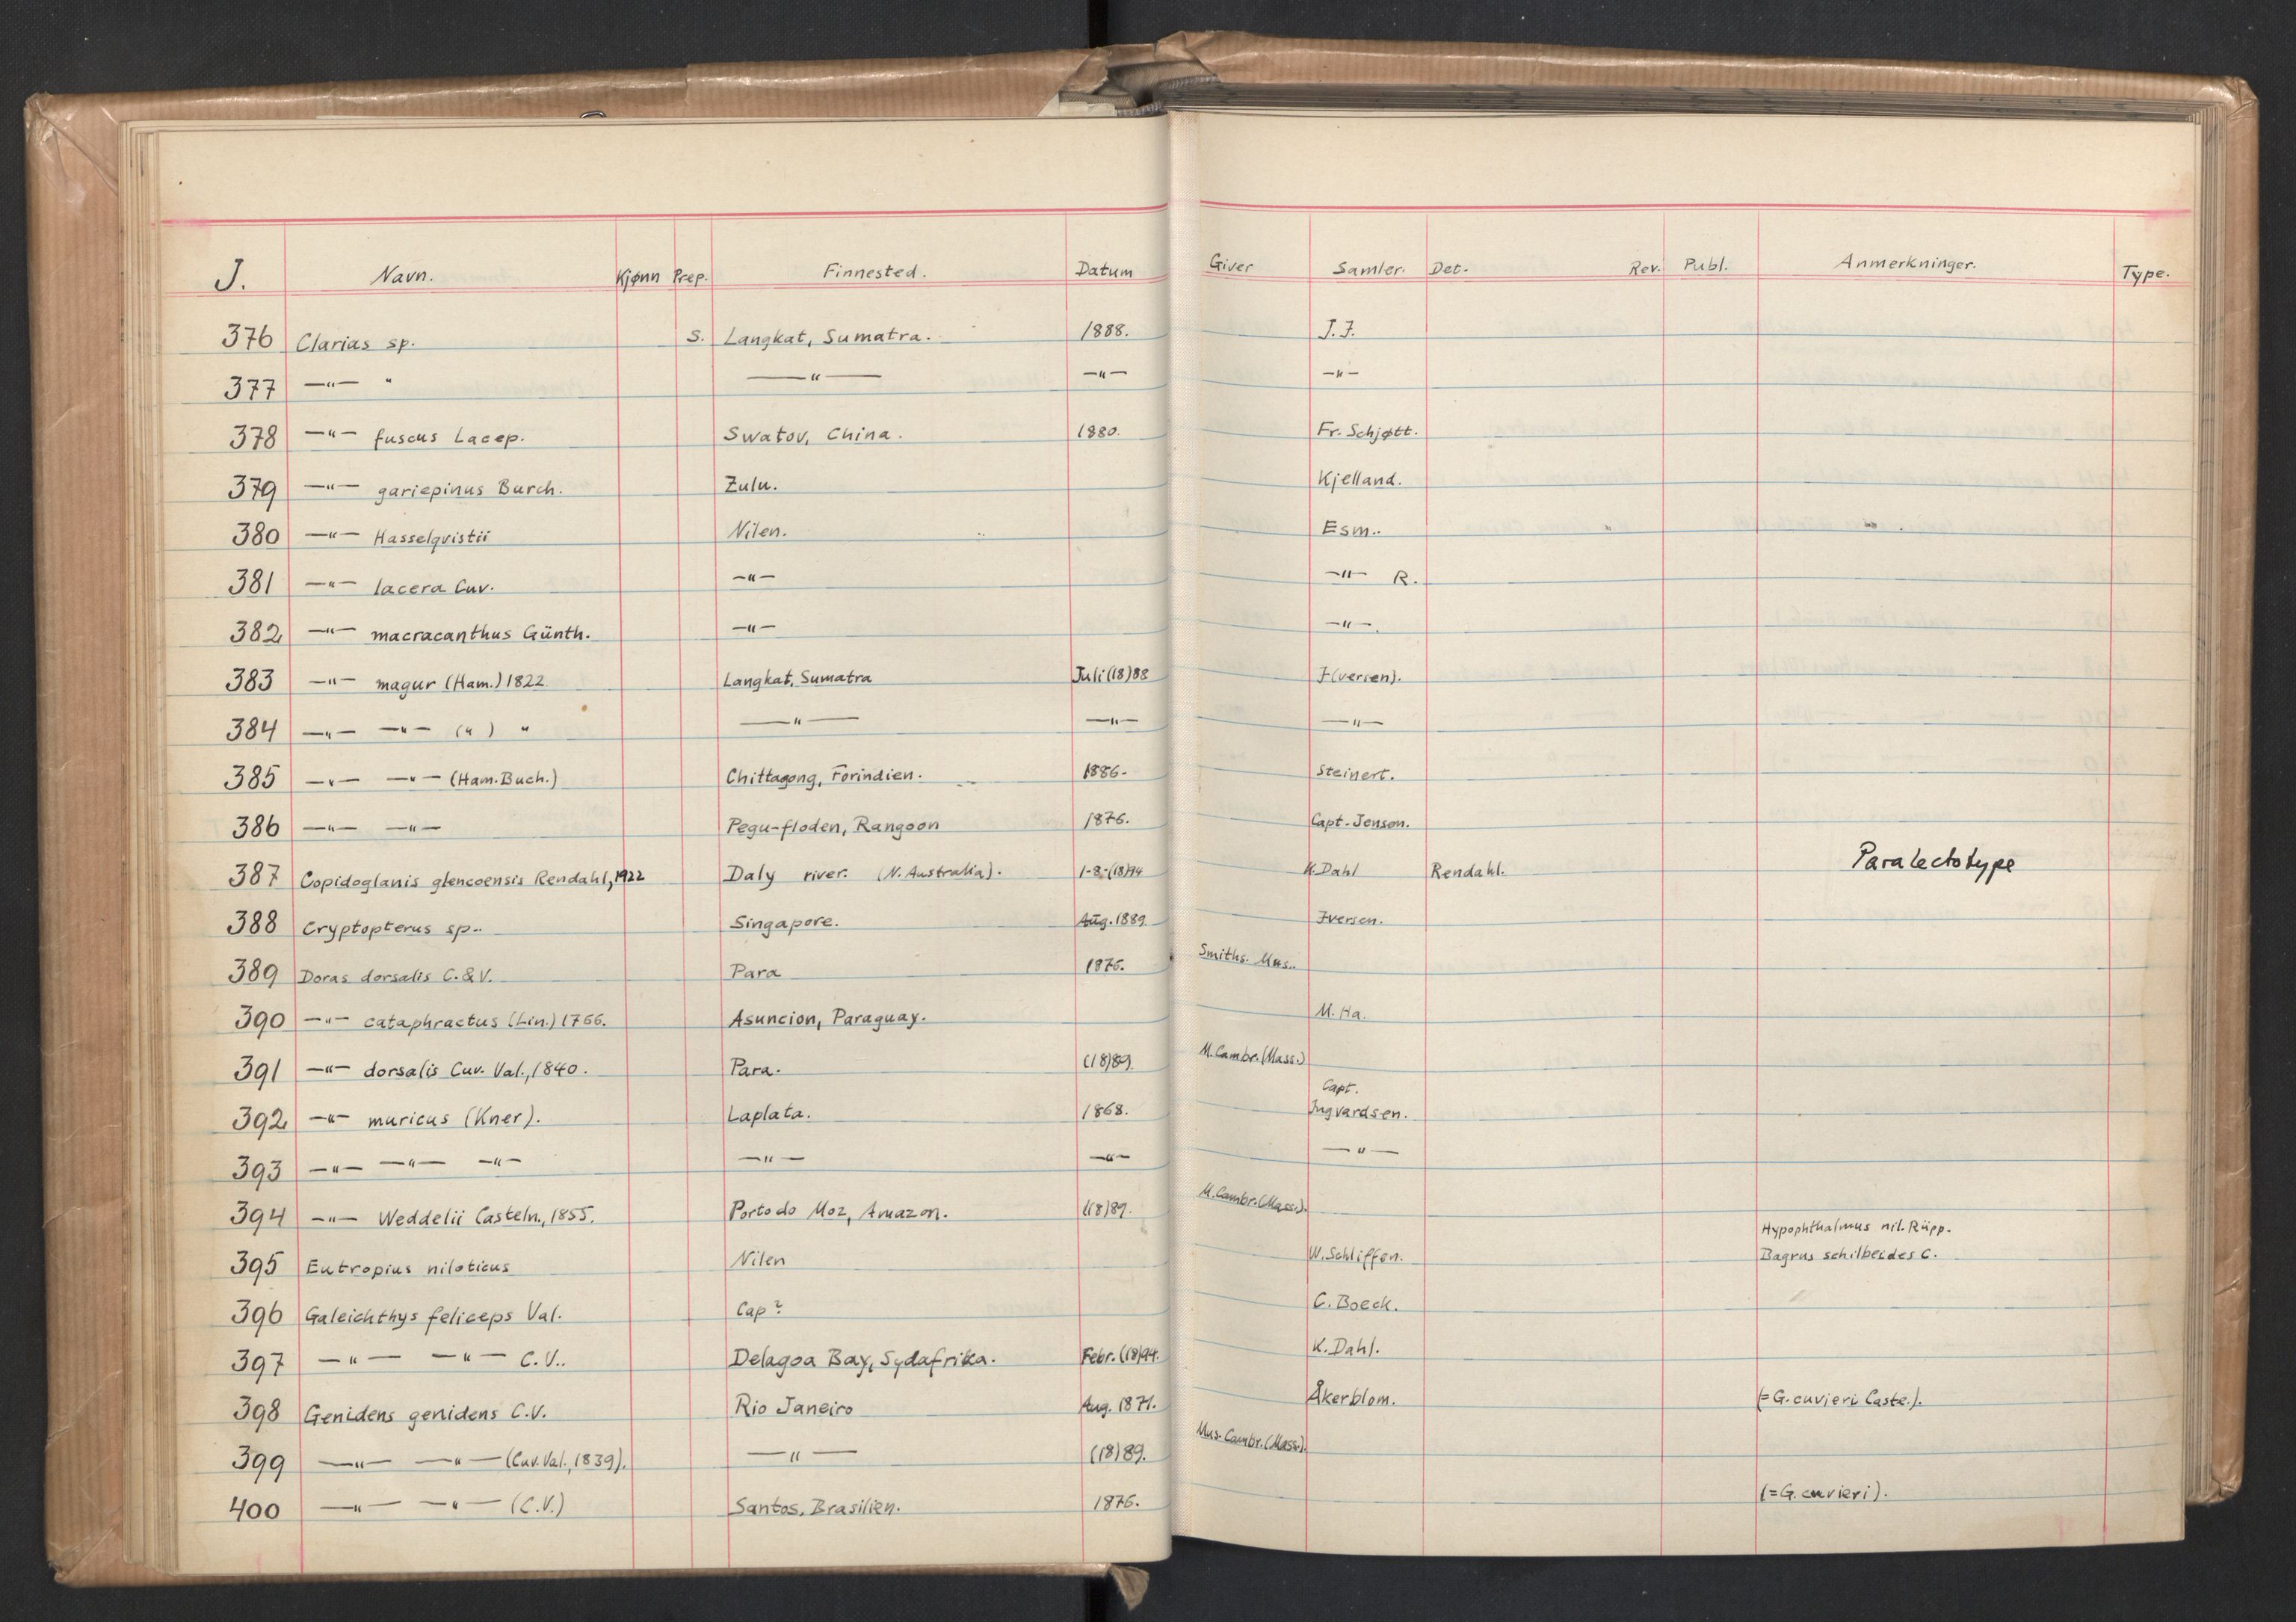 J. Navn. Kjønn Prep. Finnested. Datum Giver Samler. Det. Rev. Publ. Anmerkninger. Type.
376 Clarias sp. S. Langkat, Sumatra. 1888. J.J.
377 —"— " —"— —"— —"—
378 —"— fuscus Lacep. Swatov, China. 1880. Fr. Schjøtt.
379 —"— gariepinus Burch. Zulu. Kjelland.
380 —"— Hasselqvistii Nilen. Esm..
381 —"— lacera Cuv. —"— —"— R.
382 —"— macracanthus Günth. —"— —"—.
383 —"— magur (Ham.) 1822. Langkat, Sumatra Juli (18)88 J(versen).
384 —"— —"— (") " —"— —"— —"—
385 —"— —"— (Ham. Buch.) Chittagong, Forindien. 1886. Steinert.
386 —"— —"— Pegu-floden, Rangoon 1876. Capt. Jenson.
387 Copidoglanis glencoensis Rendahl, 1922 Daly river. (N. Australia). 1-8-(18)94 K. Dahl Rendahl. Paralectotype
388 Cryptopterus sp.. Singapore. Aug. 1889. Jversen.
389 Doras dorsalis C. & V. Para 1876. Smiths. Mus..
390 —"— cataphractus (Lin.) 1766. Asuncion, Paraguay. M. Ha.
391 —"— dorsalis Cuv. Val., 1840. Para. (18)89. M. Cambr. (Mass.)
Capt.
392 —"— muricus (Kner). Laplata. 1868. Jngvardsen.
393 —"— —"— —"— —"— —"— —"—
394 —"— Weddelii Casteln., 1855. Porto do Moz, Amazon. (18)89. M. Cambr. (Mass.).
Hypophthalmus nil. Rüpp.
395 Eutropius niloticus Nilen W. Schliffen. Bagrus schilbeides C.
396 Galeichthys feliceps Val. Cap? C. Boeck.
397 —"— —"— C.V.. Delagoa Bay, Sydafrika. Febr. (18)94. K. Dahl.
398 Genidens genidens C.V. Rio Janeiro Aug. 1871. Åkerblom. (= G. cuvieri Caste.).
399 —"— —"— (Cuv. Val., 1839). —"— (18)89. Mus. Cambr. (Mass.).
400 —"— —"— (C.V.) Santos, Brasilien. 1876. (= G. cuvieri).